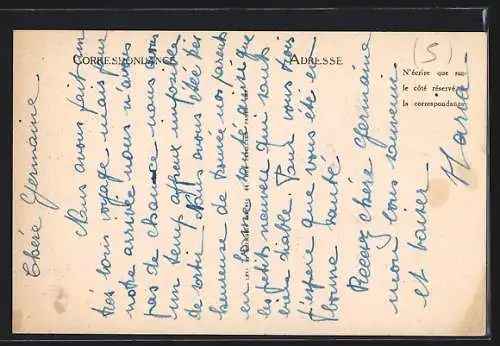 CORRESPONDANCE
ADRESSE
N'écrire que sur
le côté réservé à
la correspondance
(5)
Chère Germaine
Nous avons fait un
très bons voyage mais pour
notre arrivée nous n'avons
pas de chance nous avons
un temps affreux impossible
de sortir. Nous avons été très
heureuse de trouvée nos parents
en bonne santé ainsi que
les petits neveux qui sont
bien diable. Pour vous tous
J'espère que vous été en
bonne santé
Recevez chère Germaine
mon bons souvenir
et baiser